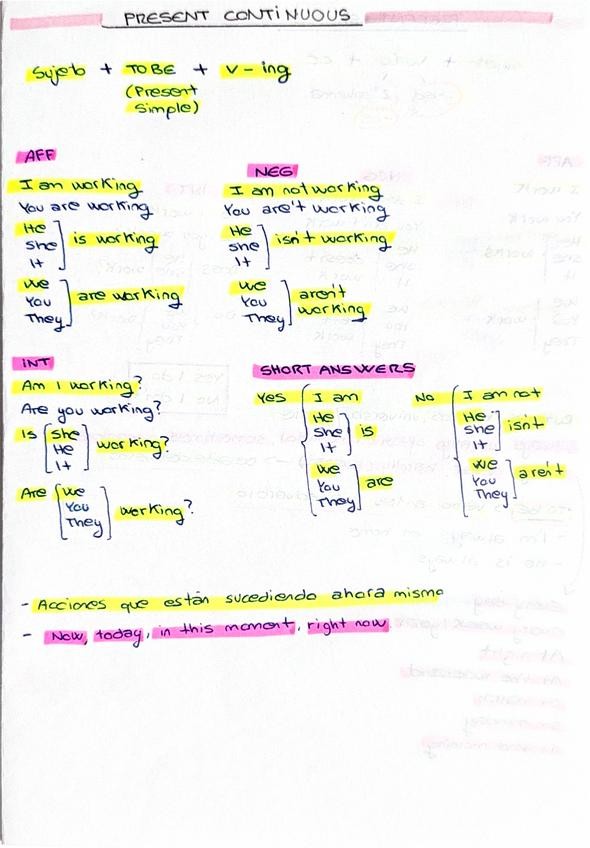 PRESENT CONTINUOUS
Sujeto + TO BE + V-ing
(Present
Simple)
AFF
I am working
You are working
He
She
It
is working
We
You
They
are working
NEG
I am not working
You are't working
He
She
It
isn't working
We
You
They
aren't
working
INT
Am I working?
Are you working?
Is
She
He
It
working?
Are
We
You
They
working?
SHORT ANSWERS
Yes
I am
He
She
It
is
We
You
They
are
No
I am not
He
She
It
isn't
We
You
They
aren't
- Acciones que están sucediendo ahora mismo
- Now, today, in this moment, right now